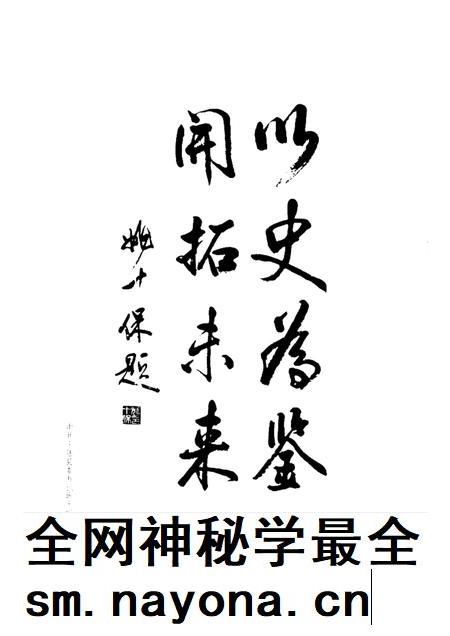 以史為鉴
開拓未来
姚十保题
全网神秘学最全
sm.nayona.cn